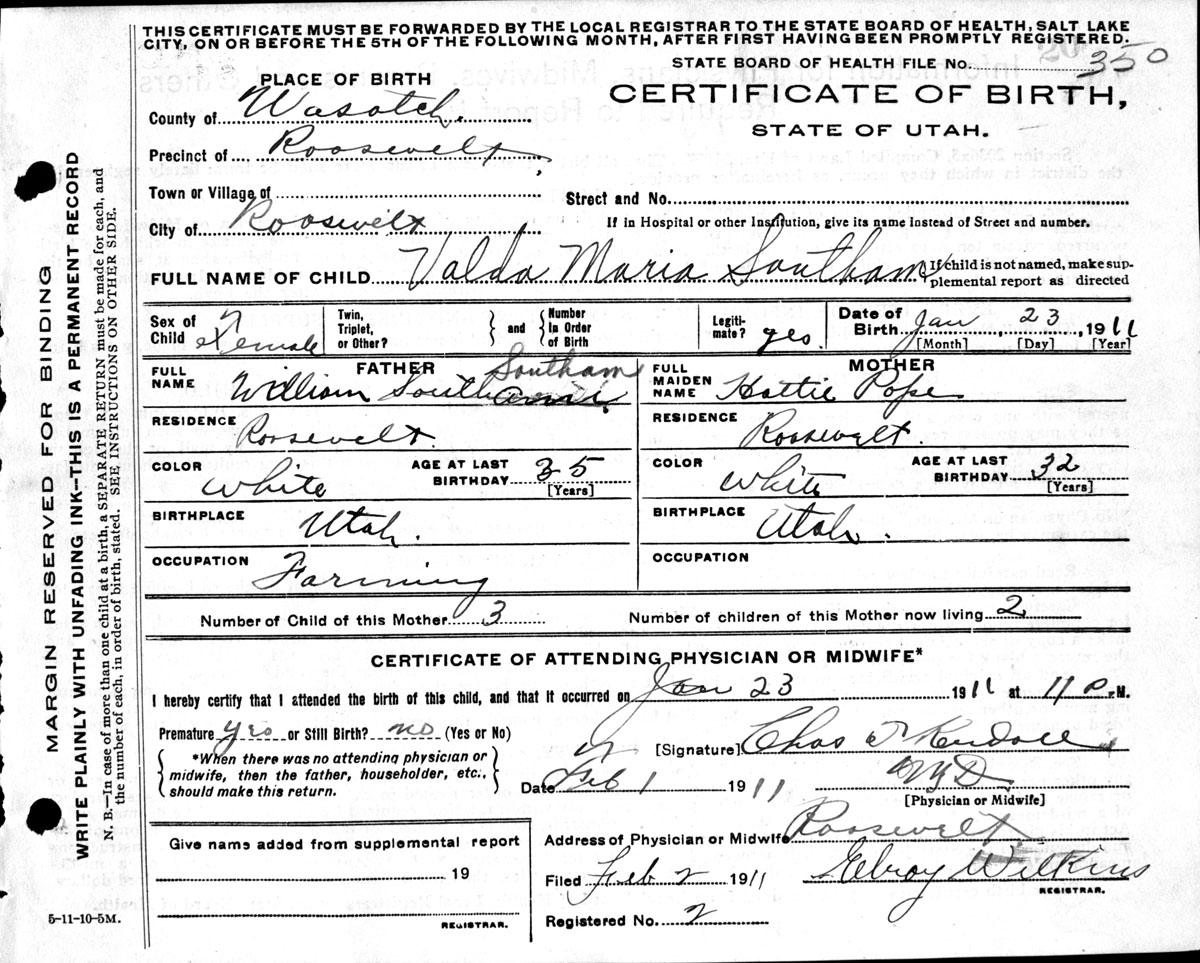 THIS CERTIFICATE MUST BE FORWARDED BY THE LOCAL REGISTRAR TO THE STATE BOARD OF HEALTH, SALT LAKE
CITY, ON OR BEFORE THE 5TH OF THE FOLLOWING MONTH, AFTER FIRST HAVING BEEN PROMPTLY REGISTERED.
STATE BOARD OF HEALTH FILE No. 350
PLACE OF BIRTH
CERTIFICATE OF BIRTH,
County of Wasatch.
STATE OF UTAH.
Precinct of Roosevelt,
Town or Village of
Street and No.
City of Roosevelt
If in Hospital or other Institution, give its name Instead of Street and number.
FULL NAME OF CHILD Valda Maria Southam
If child is not named, make sup-
plemental report as directed
Sex of Child Female
Twin, Triplet, or Other?
and Number In Order of Birth
Legiti- mate? yes.
Date of Birth Jan 23 1911
[Month] [Day] [Year]
FATHER
FULL NAME William Southam
MOTHER
FULL MAIDEN NAME Hattie Pope
RESIDENCE Roosevelt.
RESIDENCE Roosevelt.
COLOR White AGE AT LAST BIRTHDAY 35 [Years]
COLOR White AGE AT LAST BIRTHDAY 32 [Years]
BIRTHPLACE Utah.
BIRTHPLACE Utah.
OCCUPATION Farming
Number of Child of this Mother 3 Number of children of this Mother now living 2
CERTIFICATE OF ATTENDING PHYSICIAN OR MIDWIFE*
I hereby certify that I attended the birth of this child, and that it occurred on Jan 23 1911 at 11 P.M.
Premature yes or Still Birth? no (Yes or No)
[Signature] Chas
*When there was no attending physician or
midwife, then the father, householder, etc.,
should make this return.
Date Feb 1 1911
MD
[Physician or Midwife]
Give name added from supplemental report
19
REGISTRAR.
Address of Physician or Midwife Roosevelt
Filed Feb 2 1911 Elroy Wilkins
REGISTRAR.
Registered No. 2
5-11-10-5M.
MARGIN RESERVED FOR BINDING
WRITE PLAINLY WITH UNFADING INK—THIS IS A PERMANENT RECORD
N. B.—In case of more than one child at a birth, a SEPARATE RETURN must be made for each, and
the number of each, in order of birth, stated. SEE INSTRUCTIONS ON OTHER SIDE.